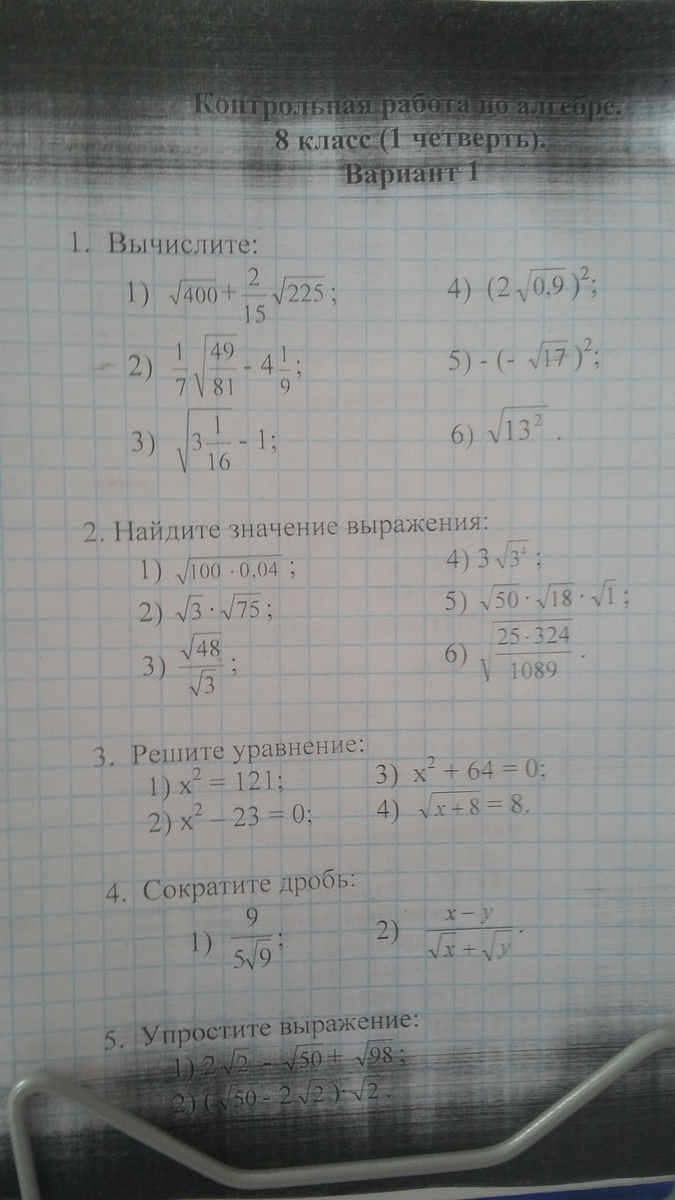 Контрольная работа по алгебре.
8 класс (1 четверть).
Вариант 1
1. Вычислите:
1) √400 + 2/15 √225 ;
2) 1/7 √(49/81) - 4 1/9 ;
3) √(3 1/16) - 1;
4) (2√0,9 )²;
5) - (- √17 )²;
6) √13² .
2. Найдите значение выражения:
1) √(100 · 0,04) ;
2) √3 · √75 ;
3) √48/√3 ;
4) 3√3⁴ ;
5) √50 · √18 · √1 ;
6) √(25 · 324/1089) .
3. Решите уравнение:
1) x² = 121;
2) x² – 23 = 0;
3) x² + 64 = 0;
4) √(x + 8) = 8.
4. Сократите дробь:
1) 9/(5√9) ;
2) (x – y)/(√x + √y) .
5. Упростите выражение:
1) 2√2 - √50 + √98 ;
2) (√50 - 2√2 )·√2 .